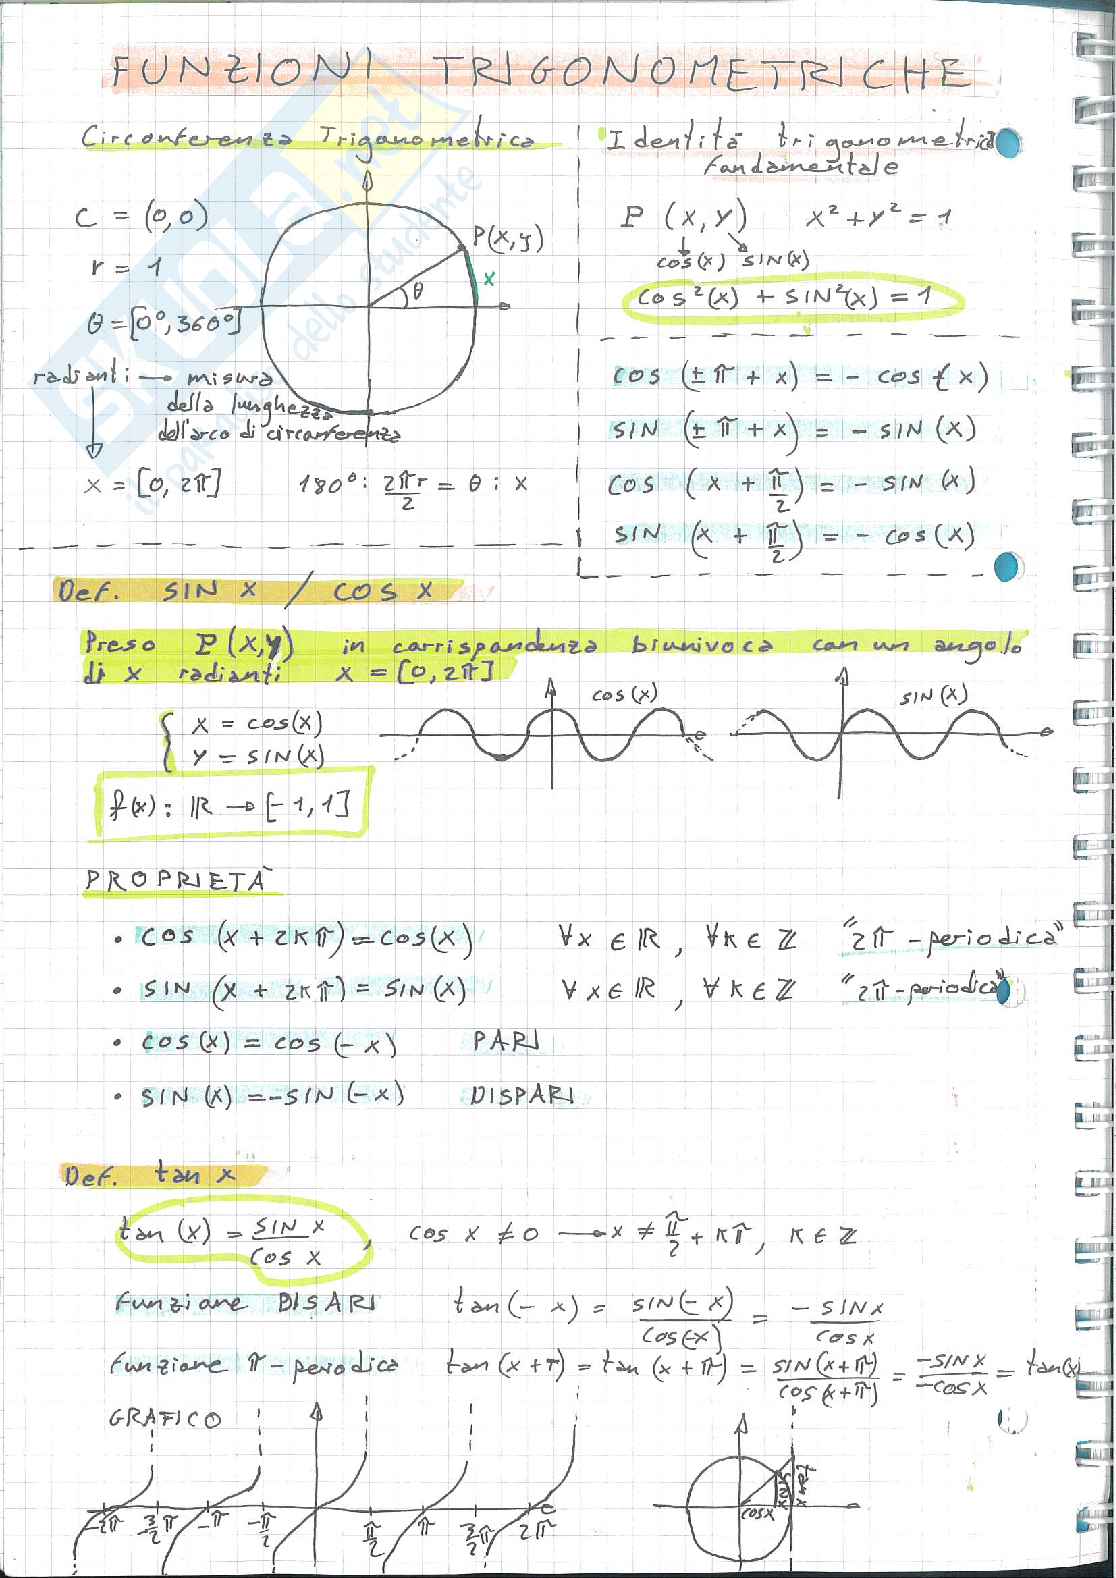 FUNZIONI TRIGONOMETRICHE
Circonferenza Trigonometrica
C = (0,0)
r = 1
θ = [0°, 360°]
P(x,y)
θ
x
radianti → misura
della lunghezza
dell'arco di circonferenza
x = [0, 2π]
180° : 2πr/2 = θ : x
Identità trigonometrica
fondamentale
P (x, y) x² + y² = 1
cos(x) sin(x)
cos²(x) + sin²(x) = 1
cos (± π + x) = - cos (x)
sin (± π + x) = - sin (x)
cos (x + π/2) = - sin (x)
sin (x + π/2) = - cos (x)
Def. sin x / cos x
Preso P(x,y) in corrispondenza biunivoca con un angolo
di x radianti x = [0, 2π]
{ x = cos(x)
y = sin(x)
f(x): ℝ → [-1, 1]
cos(x)
sin(x)
PROPRIETÀ
• cos (x + 2kπ) = cos(x) ∀x ∈ ℝ, ∀k ∈ ℤ "2π - periodica"
• sin (x + 2kπ) = sin(x) ∀x ∈ ℝ, ∀k ∈ ℤ "2π - periodica"
• cos (x) = cos (- x) PARI
• sin (x) = - sin (- x) DISPARI
Def. tan x
tan (x) = sin x / cos x , cos x ≠ 0 → x ≠ π/2 + kπ, k ∈ ℤ
Funzione DISARI tan (- x) = sin(- x) / cos(-x) = - sin x / cos x
Funzione π - perodica tan (x + τ) = tan (x + π) = sin(x+π) / cos(x+π) = -sin x / -cos x = tan(x)
GRAFICO
-2π -3/2 π -π -π/2 π/2 π 3/2 π 2π
cos x sin x tan x
skuola.net
il portale dello studente